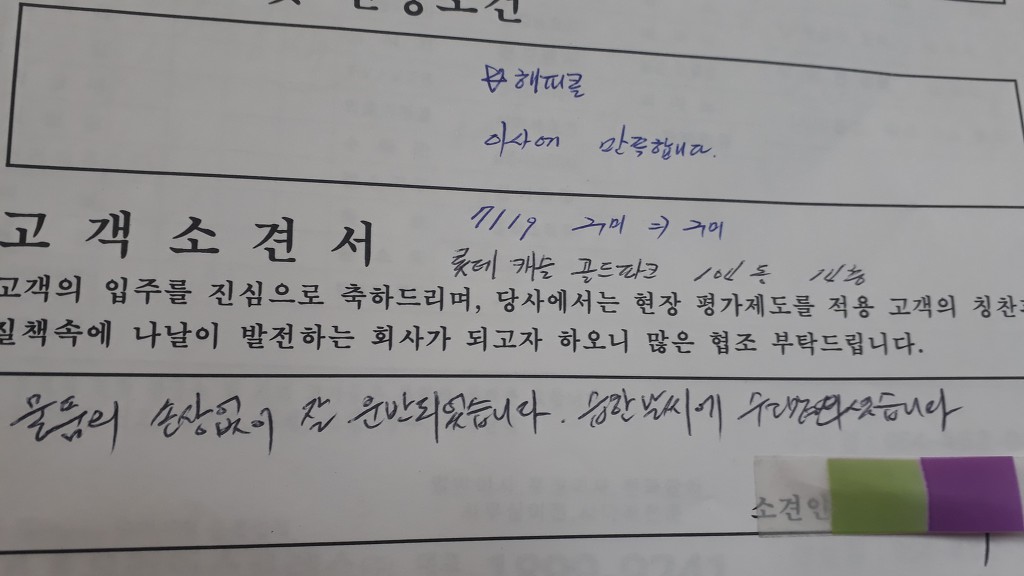 ☆해피콜
이사에 만족합니다.
고객소견서
7/19 구미 ⇒ 구미
롯데 캐슬 골드파크
고객의 입주를 진심으로 축하드리며, 당사에서는 현장 평가제도를 적용 고객의 칭찬과
질책속에 나날이 발전하는 회사가 되고자 하오니 많은 협조 부탁드립니다.
물품의 손상없이 잘 운반되었습니다. 습한날씨에 수고많으셨습니다
소견인